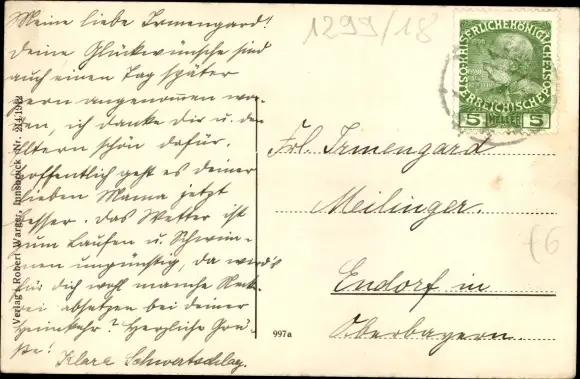 Meine liebe Irmengard!
Deine Glückwünsche sind
auch einen Tag später
gern angenommen wor-
den, ich danke dir u. den
Eltern schön dafür.
Hoffentlich geht es deiner
lieben Mama jetzt
besser. Das Wetter ist
zum Laufen u. Schwim-
men ungünstig, da wird's
für dich wohl manche
absetzen bei deiner
Heimkehr? Herzliche Grü-
ße! Klara
Verlag: Robert Warger, Innsbruck Nr. 211/1912
997a
1299/18
KAISERLICHE KÖNIGLICHE
ÖSTERREICHISCHE POST
5 HELLER 5
Frl. Irmengard
Meilinger.
Endorf in
Oberbayern.
£6